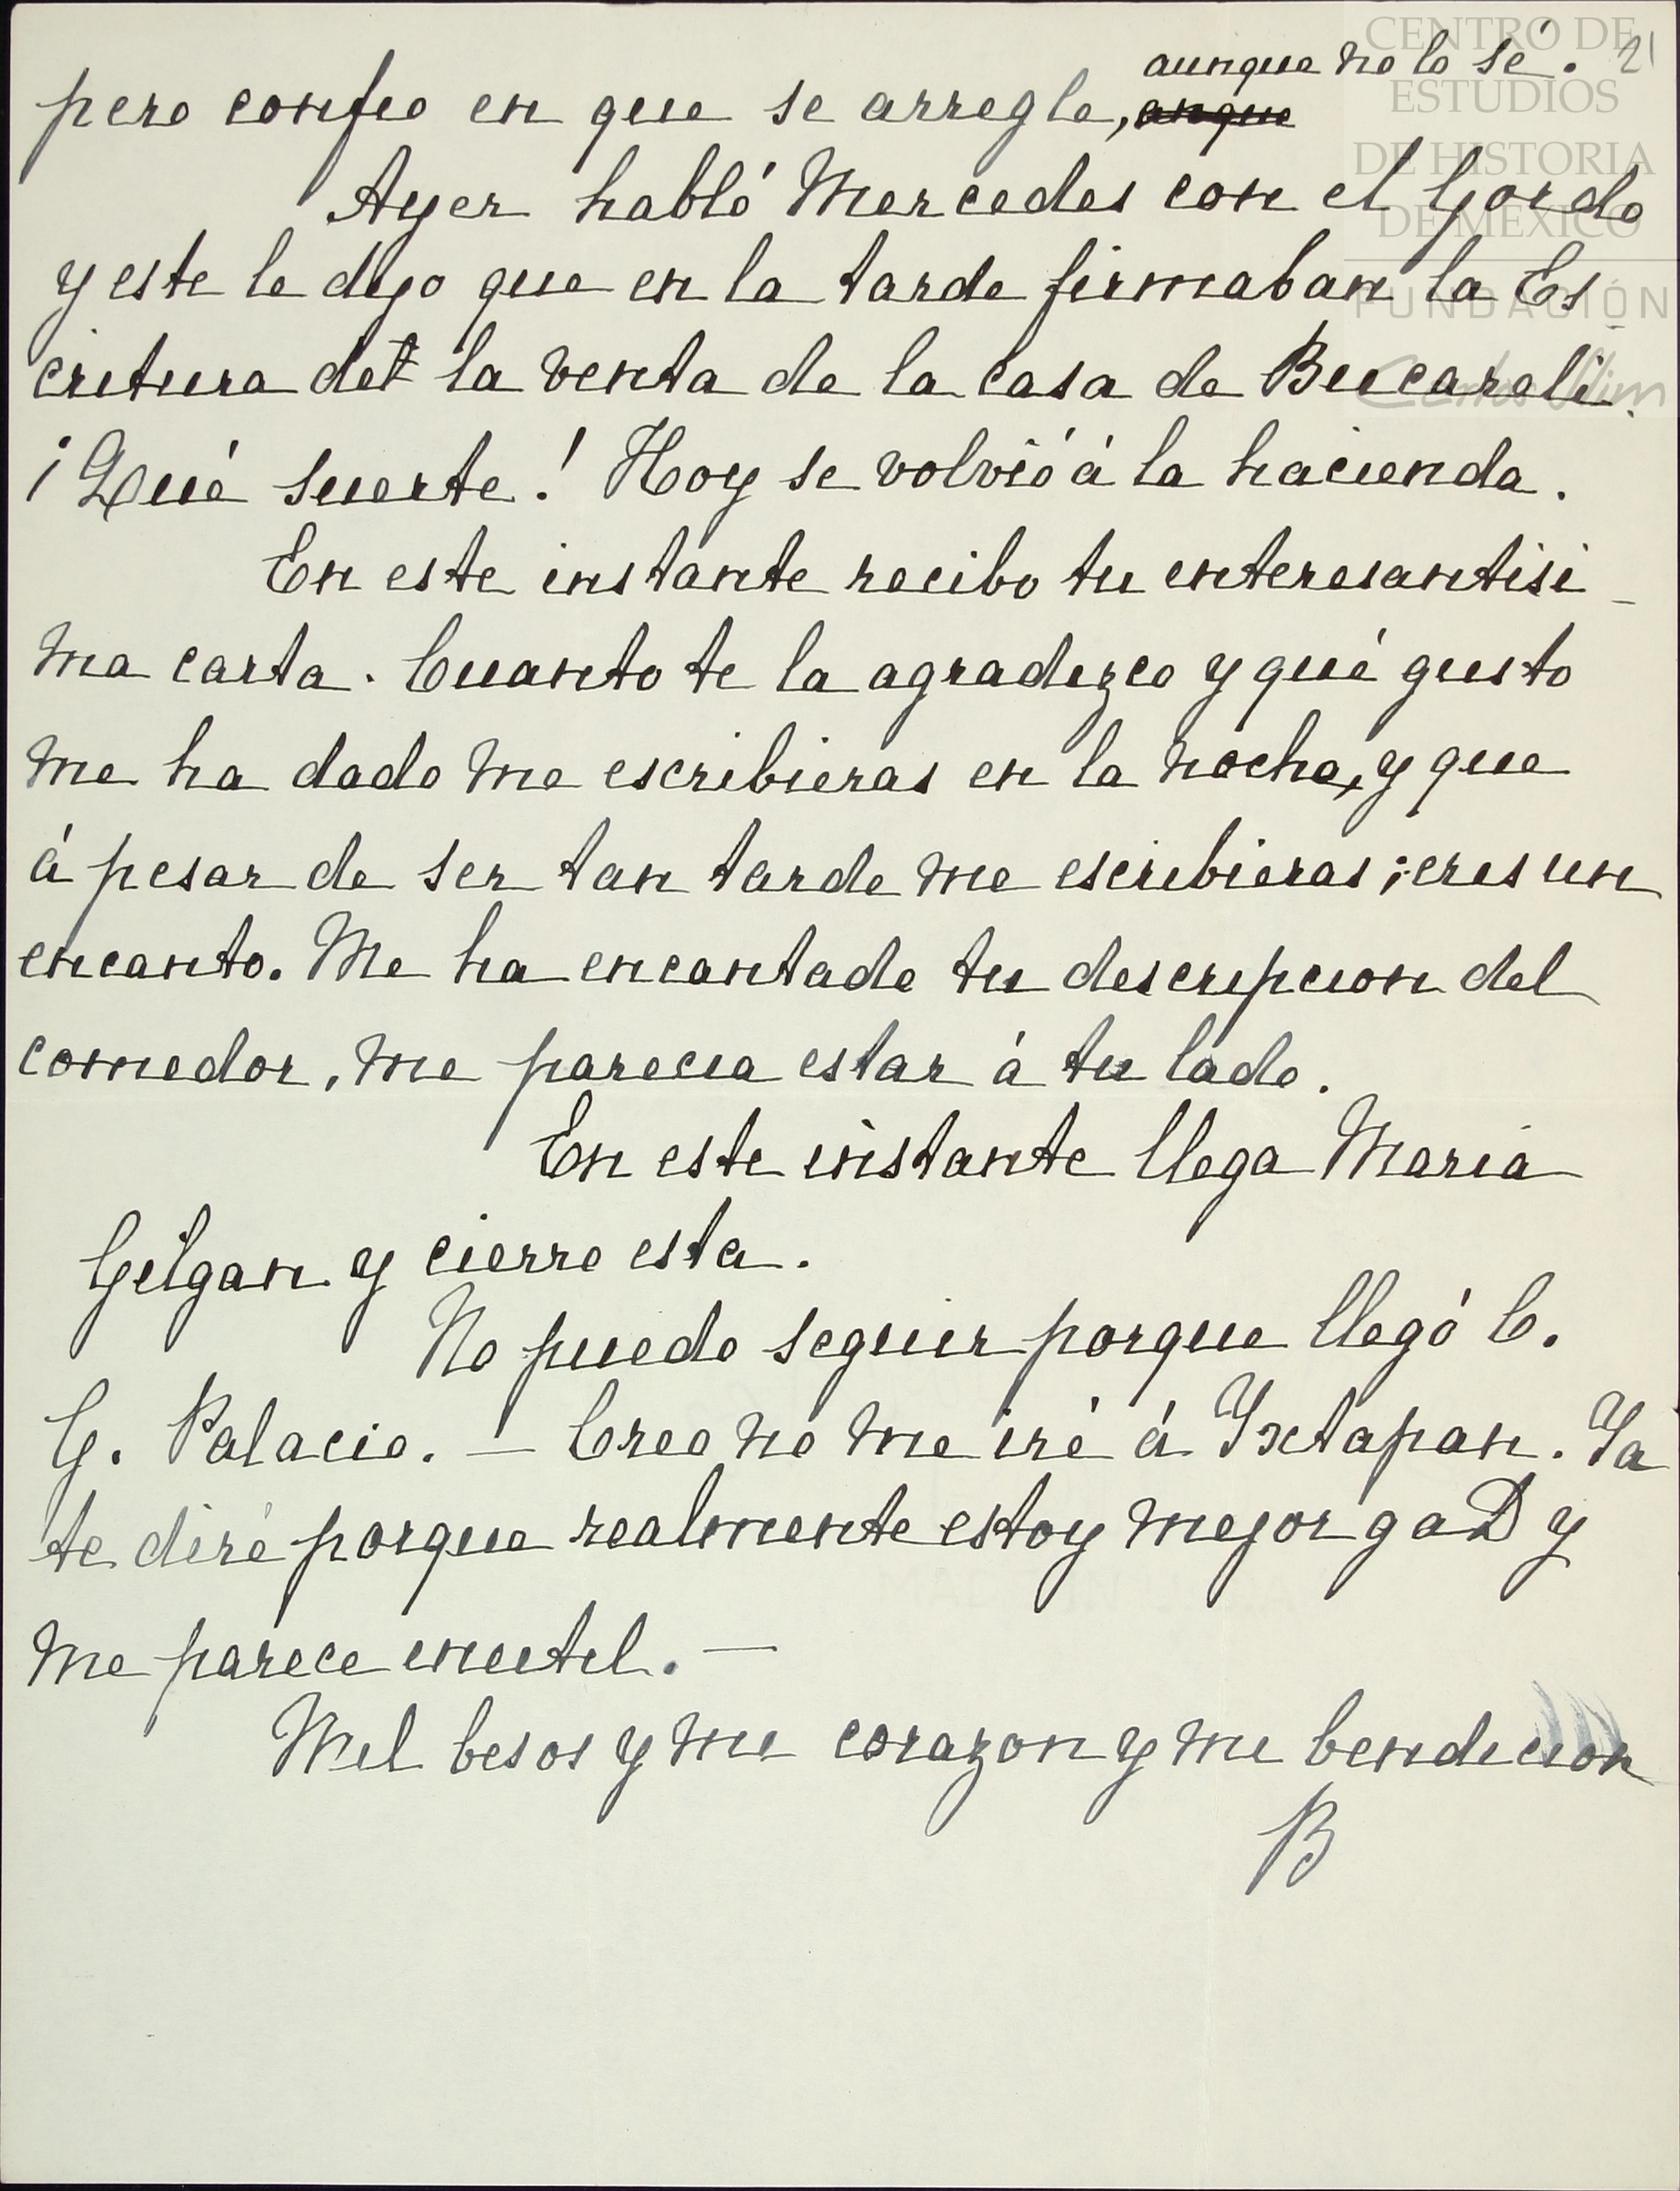 CENTRO DE
ESTUDIOS
DE HISTORIA
DE MÉXICO
FUNDACIÓN
Carlos Slim
21
aunque no lo sé.
pero confio en que se arregle, anque
Ayer habló Mercedes con el Gordo
y este le dijo que en la tarde firmaban la Es
critura del la venta de la casa de Bucareli.
¡Qué suerte! Hoy se volvió á la hacienda.
En este instante recibo tu interesantisi-
ma carta. Cuanto te la agradezco y qué gusto
me ha dado me escribieras en la noche, y que
á pesar de ser tan tarde me escribieras; eres un
encanto. Me ha encantado tu descripcion del
comedor, me parecia estar á tu lado.
En este instante llega Maria
Gilgan y cierro esta.
No puedo seguir porque llegó C.
G. Palacio. — Creo no me iré á Yxtapan. Ya
te diré porque realmente estoy mejor g a D y
me parece inutil. —
Mil besos y mi corazon y mi bendicion
B